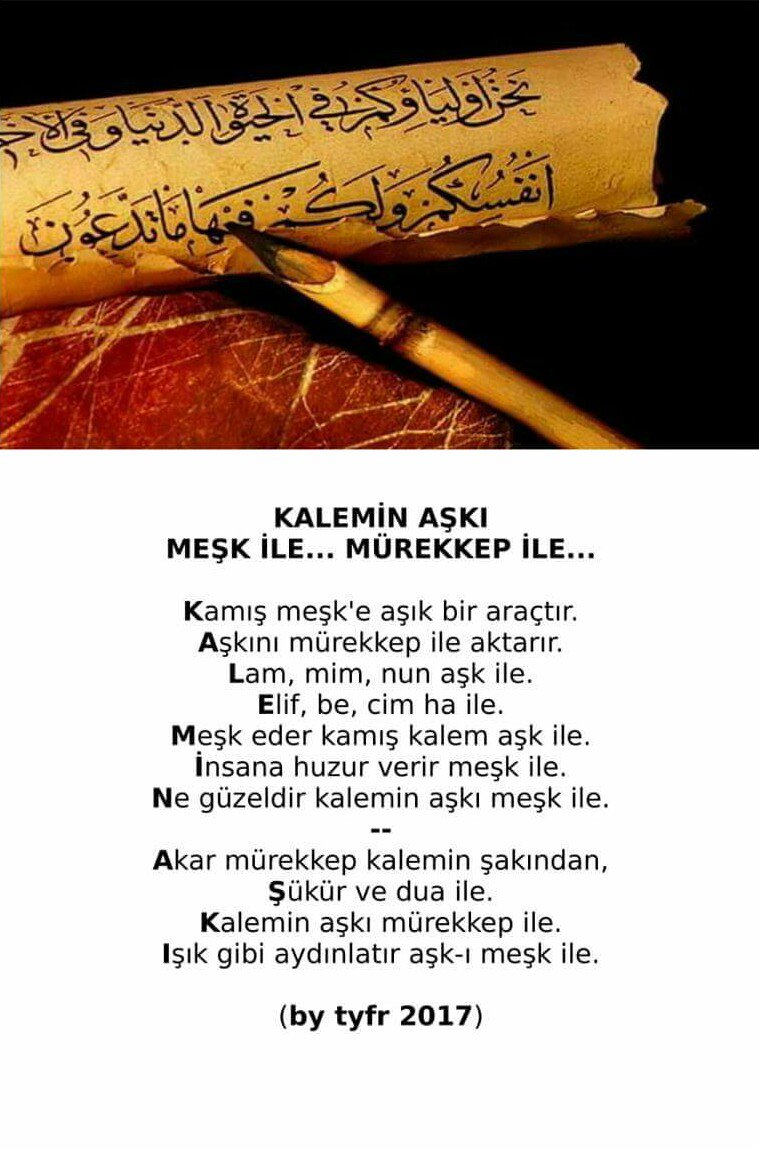 نحن أولياؤكم في الحيوة الدنيا وفي الاخ
أنفسكم ولكم فيها ما تدعون
KALEMİN AŞKI
MEŞK İLE... MÜREKKEP İLE...
Kamış meşk'e aşık bir araçtır.
Aşkını mürekkep ile aktarır.
Lam, mim, nun aşk ile.
Elif, be, cim ha ile.
Meşk eder kamış kalem aşk ile.
İnsana huzur verir meşk ile.
Ne güzeldir kalemin aşkı meşk ile.
--
Akar mürekkep kalemin şakından,
Şükür ve dua ile.
Kalemin aşkı mürekkep ile.
Işık gibi aydınlatır aşk-ı meşk ile.
(by tyfr 2017)